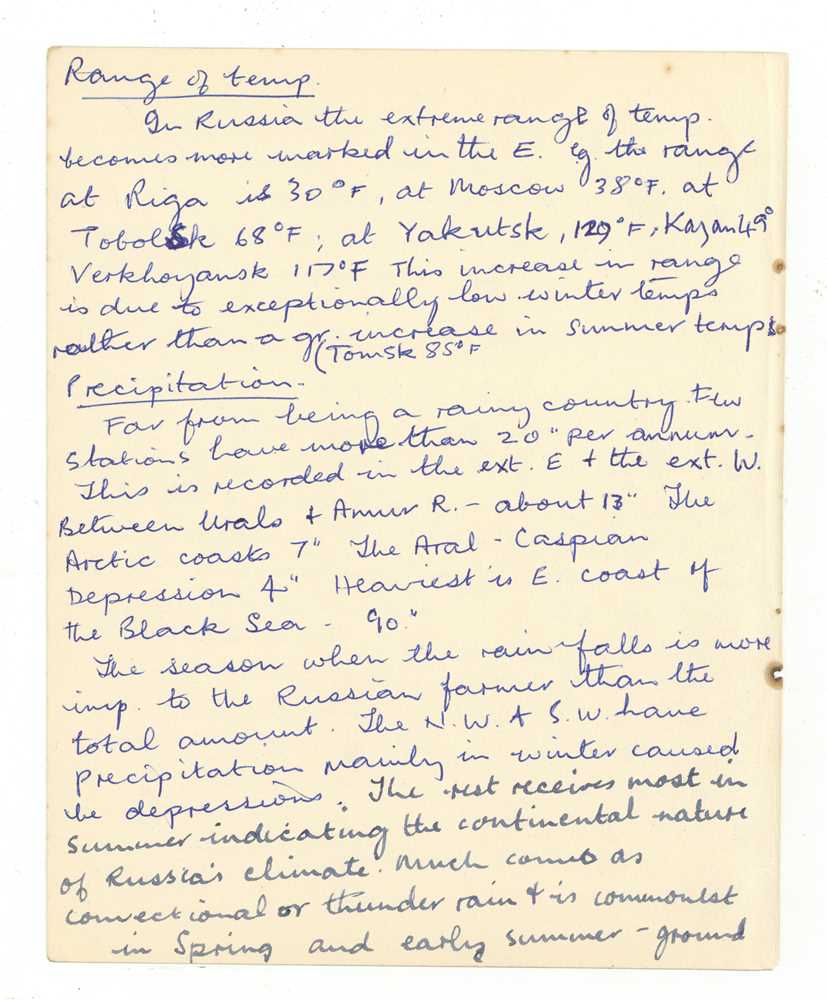 Range of temp.
In Russia the extreme range of temp.
becomes more marked in the E. eg. the range
at Riga is 30°F, at Moscow 38°F. at
Tobolsk 68°F; at Yakutsk, 129°F, Kazan 49°
Verkhoyansk 117°F This increase in range
is due to exceptionally low winter temps
rather than a gr. increase in summer temps
(Tomsk 85°F
Precipitation.
Far from being a rainy country. Few
stations have more than 20" per annum.
This is recorded in the ext. E + the ext. W.
Between Urals + Amur R. - about 13" The
Arctic coasts 7" The Aral - Caspian
Depression 4" Heaviest is E. coast of
the Black Sea - 90"
The season when the rain falls is more
imp. to the Russian farmer than the
total amount. The N.W. + S.W. have
precipitation mainly in winter caused
be depressions. The rest receives most in
summer indicating the continental nature
of Russia's climate. Much comes as
convectional or thunder rain + is commonest
in Spring and early summer - ground